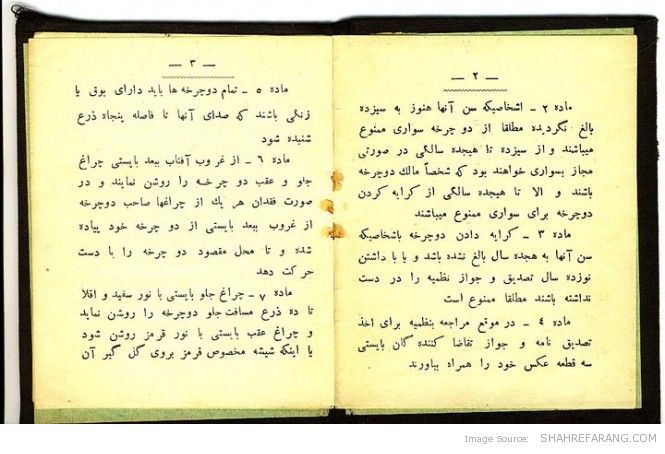 — ۲ —
ماده ۲ ـ اشخاصیکه سن آنها هنوز به سیزده
بالغ نگردیده مطلقا از دو چرخه سواری ممنوع
میباشند و از سیزده تا هیجده سالگی در صورتی
مجاز بسواری خواهند بود که شخصاً مالك دوچرخه
باشند و الا تا هیجده سالگی از کرایه کردن
دوچرخه برای سواری ممنوع میباشند
ماده ۳ ـ کرایه دادن دوچرخه باشخاصیکه
سن آنها به هجده سال بالغ نشده باشد و یا با داشتن
نوزده سال تصدیق و جواز نظمیه را در دست
نداشته باشند مطلقا ممنوع است
ماده ٤ ـ در موقع مراجعه بنظمیه برای اخذ
تصدیق نامه و جواز تقاضا کننده گان بایستی
سه قطعه عکس خود را همراه بیاورند
— ۳ —
ماده ٥ ـ تمام دوچرخه ها باید دارای بوق یا
زنگی باشند که صدای آنها تا فاصله پنجاه ذرع
شنیده شود
ماده ٦ ـ از غروب آفتاب ببعد بایستی چراغ
جلو و عقب دو چرخه را روشن نمایند و در
صورت فقدان هر یك از چراغها صاحب دوچرخه
از غروب ببعد بایستی از دو چرخه خود پیاده
شده و تا محل مقصود دو چرخه را با دست
حرکت دهد
ماده ۷ ـ چراغ جلو بایستی با نور سفید و اقلا
تا ده ذرع مسافت جلو دوچرخه را روشن نماید
و چراغ عقب بایستی با نور قرمز روشن شود
یا اینکه شیشه مخصوص قرمز بروی گل گیر آن
Image Source: SHAHREFARANG.COM